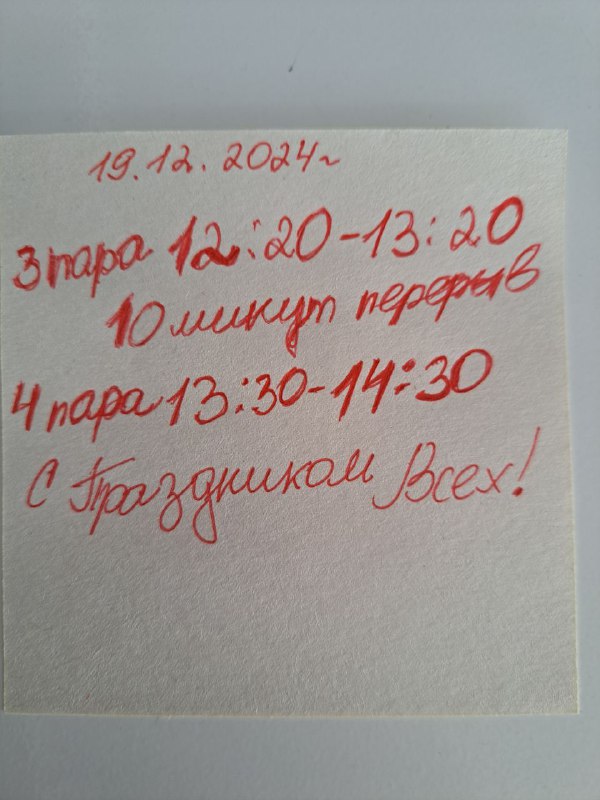 19.12.2024г
3 пара 12:20-13:20
10 минут перерыв
4 пара 13:30-14:30
С Праздником Всех!